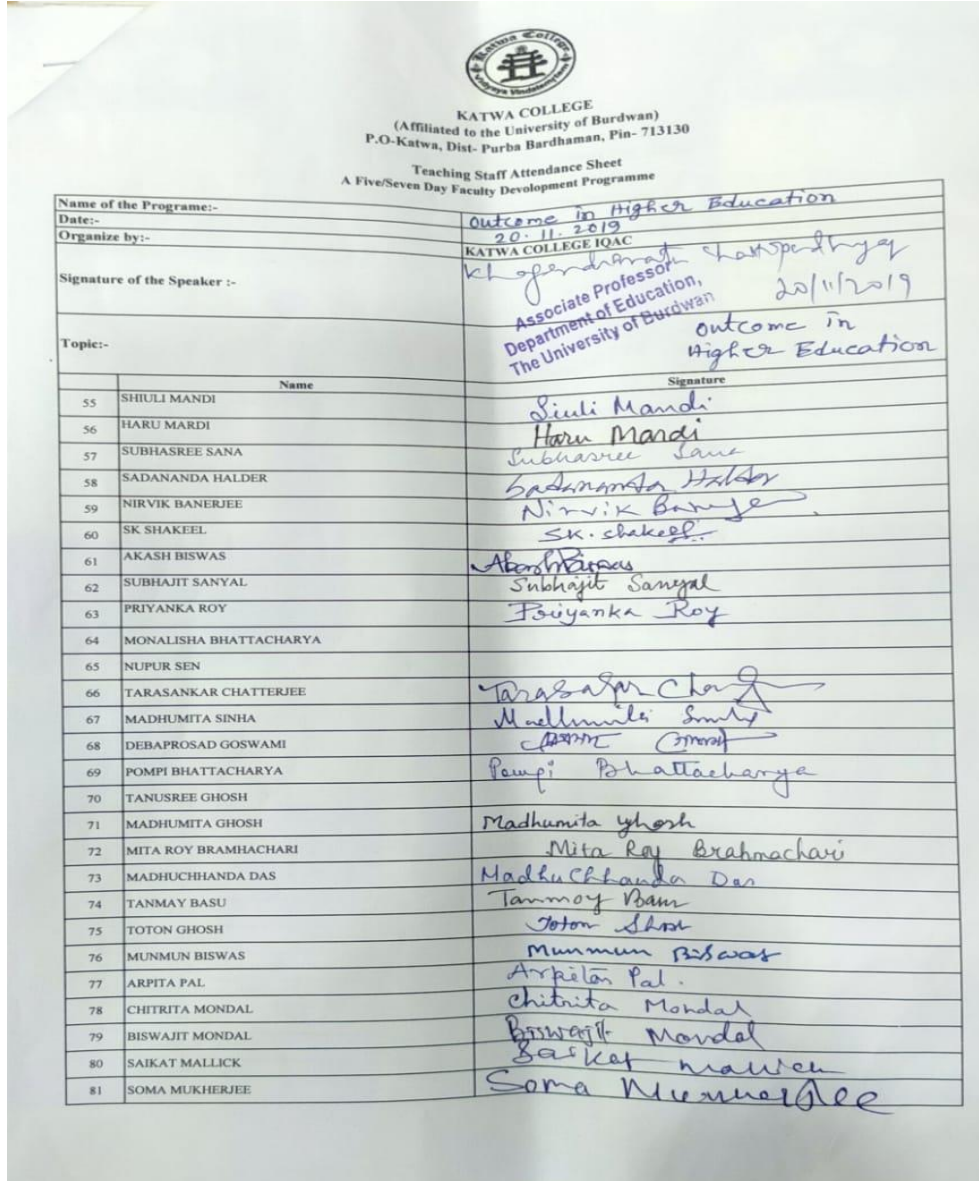 Katwa College
KATWA COLLEGE
(Affiliated to the University of Burdwan)
P.O-Katwa, Dist- Purba Bardhaman, Pin- 713130
Teaching Staff Attendance Sheet
A Five/Seven Day Faculty Devolopment Programme
Name of the Programe:- Outcome in Higher Education
Date:- 20.11.2019
Organize by:- KATWA COLLEGE IQAC
Signature of the Speaker :- Khagendranath Chattopadhyay
20/11/2019
Associate Professor
Department of Education,
The University of Burdwan
Topic:- Outcome in
Higher Education
Name Signature
55 SHIULI MANDI Siuli Mandi
56 HARU MARDI Haru Mardi
57 SUBHASREE SANA Subhasree Sana
58 SADANANDA HALDER Sadananda Halder
59 NIRVIK BANERJEE Nirvik Banerjee
60 SK SHAKEEL SK. Shakeel
61 AKASH BISWAS Akash Biswas
62 SUBHAJIT SANYAL Subhajit Sanyal
63 PRIYANKA ROY Priyanka Roy
64 MONALISHA BHATTACHARYA
65 NUPUR SEN
66 TARASANKAR CHATTERJEE
67 MADHUMITA SINHA Madhumita
68 DEBAPROSAD GOSWAMI
69 POMPI BHATTACHARYA Pompi Bhattacharya
70 TANUSREE GHOSH
71 MADHUMITA GHOSH Madhumita Ghosh
72 MITA ROY BRAMHACHARI Mita Roy Brahmachari
73 MADHUCHHANDA DAS Madhuchhanda Das
74 TANMAY BASU Tanmoy Basu
75 TOTON GHOSH Toton Ghosh
76 MUNMUN BISWAS Munmun Biswas
77 ARPITA PAL Arpita Pal.
78 CHITRITA MONDAL Chitrita Mondal
79 BISWAJIT MONDAL Biswajit Mondal
80 SAIKAT MALLICK Saikat Mallick
81 SOMA MUKHERJEE Soma Mukherjee